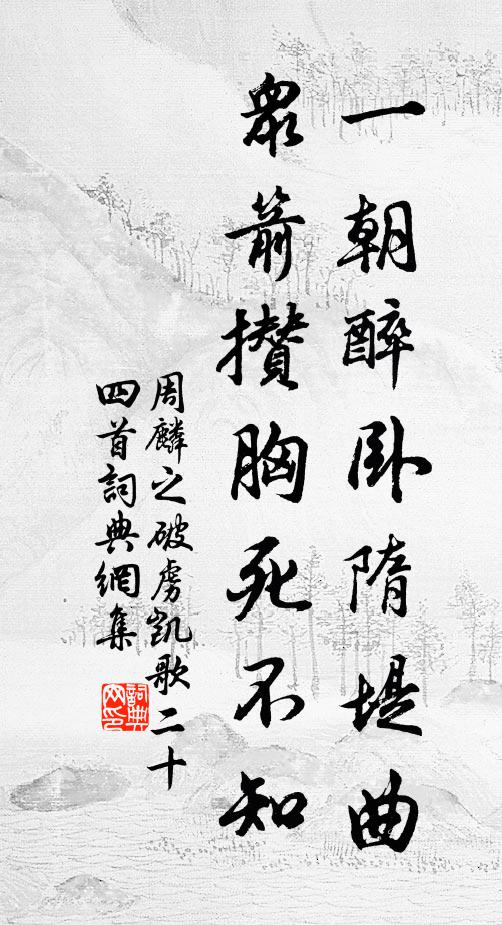 一朝醉卧隋堤曲
眾箭攢胸死不知
周麟之破虜凱歌二十
四首詞典網集
詞典
网印